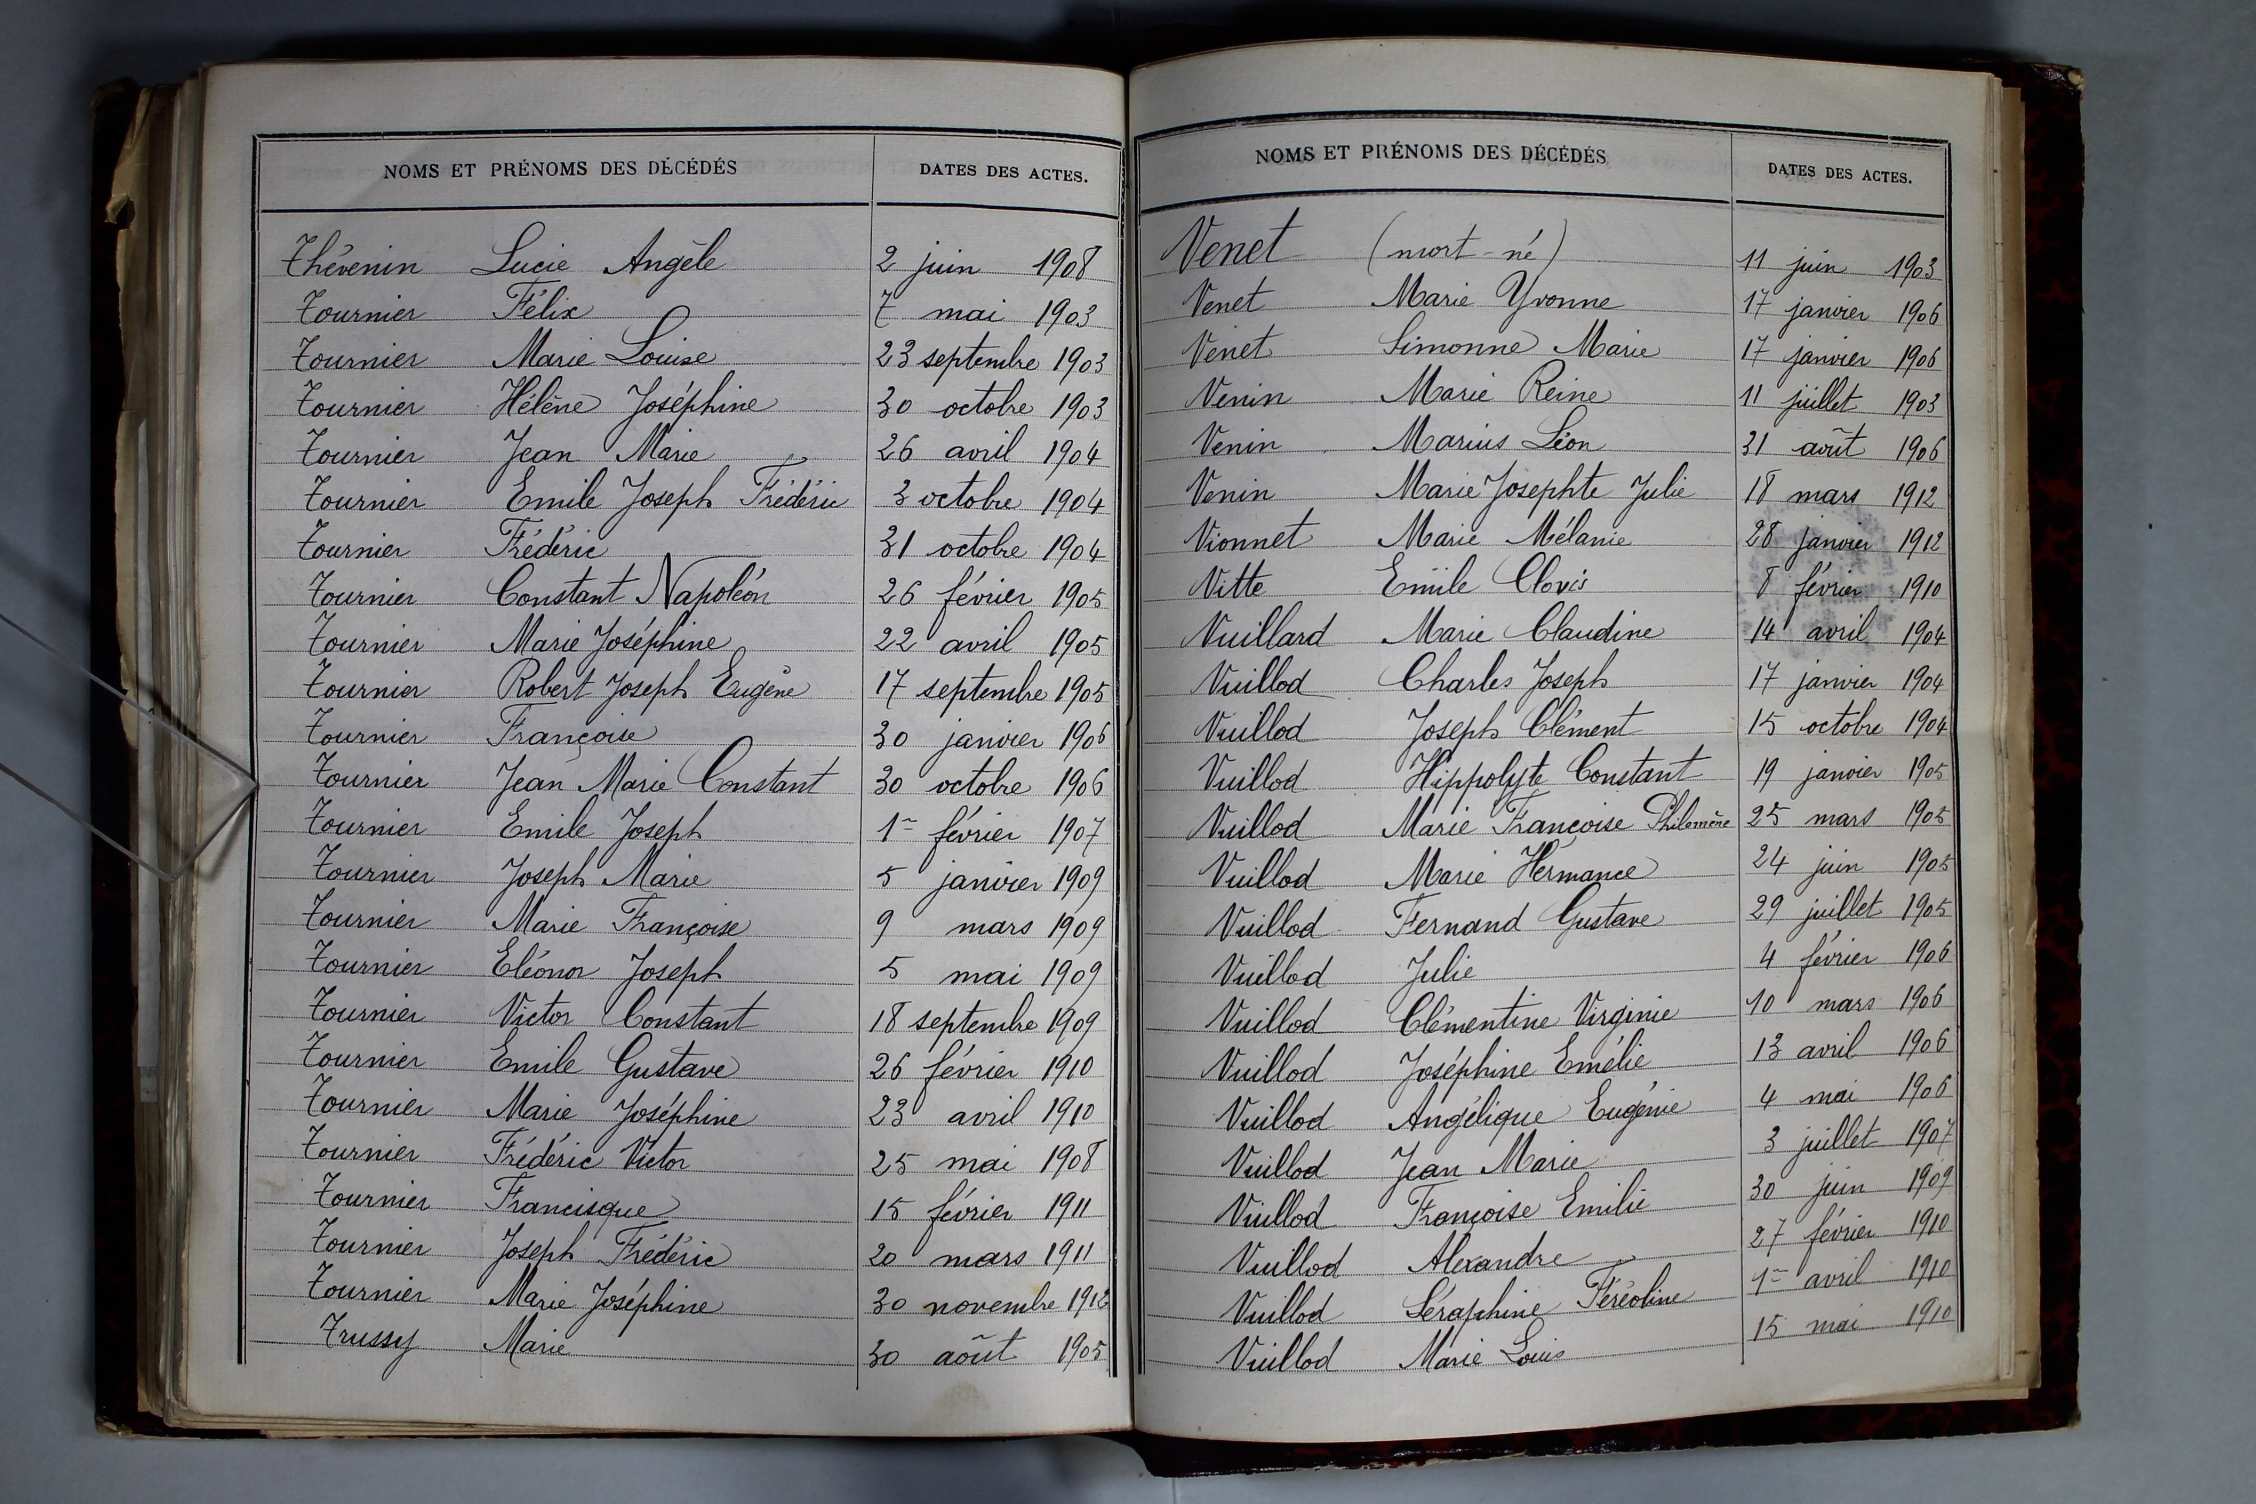 NOMS ET PRÉNOMS DES DÉCÉDÉS DATES DES ACTES.
Thévenin Lucie Angèle 2 juin 1908
Tournier Félix 7 mai 1903
Tournier Marie Louise 23 septembre 1903
Tournier Hélène Joséphine 30 octobre 1903
Tournier Jean Marie 26 avril 1904
Tournier Emile Joseph Frédéric 3 octobre 1904
Tournier Frédéric 31 octobre 1904
Tournier Constant Napoléon 26 février 1905
Tournier Marie Joséphine 22 avril 1905
Tournier Robert Joseph Eugène 17 septembre 1905
Tournier Françoise 30 janvier 1906
Tournier Jean Marie Constant 30 octobre 1906
Tournier Emile Joseph 1er février 1907
Tournier Joseph Marie 5 janvier 1909
Tournier Marie Françoise 9 mars 1909
Tournier Eléonor Joseph 5 mai 1909
Tournier Victor Constant 18 septembre 1909
Tournier Emile Gustave 26 février 1910
Tournier Marie Joséphine 23 avril 1910
Tournier Frédéric Victor 25 mai 1908
Tournier Francisque 15 février 1911
Tournier Joseph Frédéric 20 mars 1911
Tournier Marie Joséphine 30 novembre 1912
Trussy Marie 30 août 1905
NOMS ET PRÉNOMS DES DÉCÉDÉS DATES DES ACTES.
Venet (mort-né) 11 juin 1903
Venet Marie Yvonne 17 janvier 1906
Venet Simonne Marie 17 janvier 1906
Venin Marie Reine 11 juillet 1903
Venin Marius Léon 31 août 1906
Venin Marie Josephte Julie 18 mars 1912
Vionnet Marie Mélanie 28 janvier 1912
Vitte Emile Clovis 8 février 1910
Vuillard Marie Claudine 14 avril 1904
Vuillod Charles Joseph 17 janvier 1904
Vuillod Joseph Clément 15 octobre 1904
Vuillod Hippolyte Constant 19 janvier 1905
Vuillod Marie Françoise Philomène 25 mars 1905
Vuillod Marie Hermance 24 juin 1905
Vuillod Fernand Gustave 29 juillet 1905
Vuillod Julie 4 février 1906
Vuillod Clémentine Virginie 10 mars 1906
Vuillod Joséphine Emélie 13 avril 1906
Vuillod Angélique Eugénie 4 mai 1906
Vuillod Jean Marie 3 juillet 1907
Vuillod Françoise Emilie 30 juin 1909
Vuillod Alexandre 27 février 1910
Vuillod Séraphine Féréoline 1er avril 1910
Vuillod Marie Louis 15 mai 1910